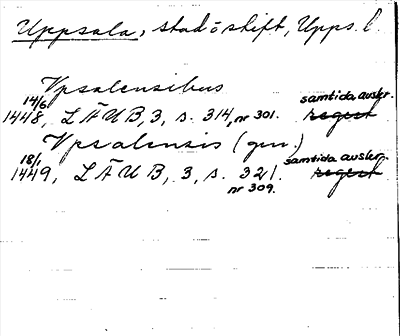 Uppsala, stad o stift, Upps. l.
Vpsalensibus
14/6 samtida avskr.
1448, LÄUB, 3, s. 314, nr 301. regest
Vpsalensis (gen.)
18/1 samtida avskr.
1449, LÄUB, 3, s. 321. regest
nr 309.